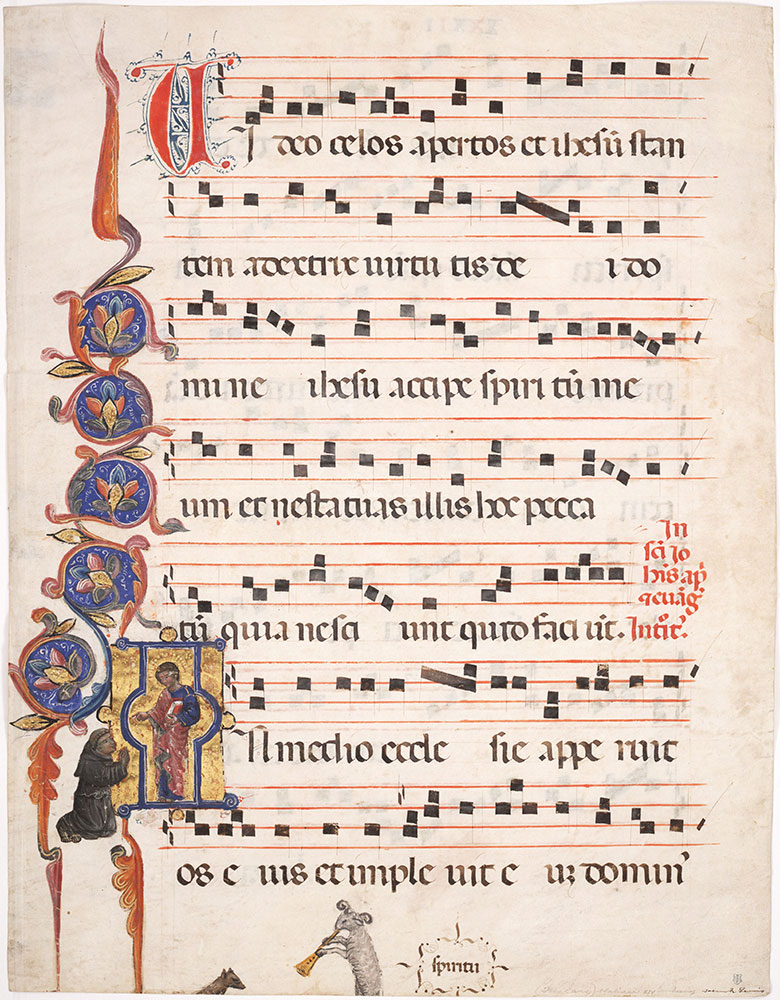 Video celos apertos et ihesū stan
tem adextrix uirtu tis de i do
mine ihesu accipe spiri tū me
um et nestatuas illis hoc pecca
tū quia nesci unt quid faci ūt.
In
sči Io
his ap̄
⁊ euāg̃
Introit̃.
IN medio eccle sie appe ruit
os e ius et imple uit e uꝫ domin᾽
spiritu